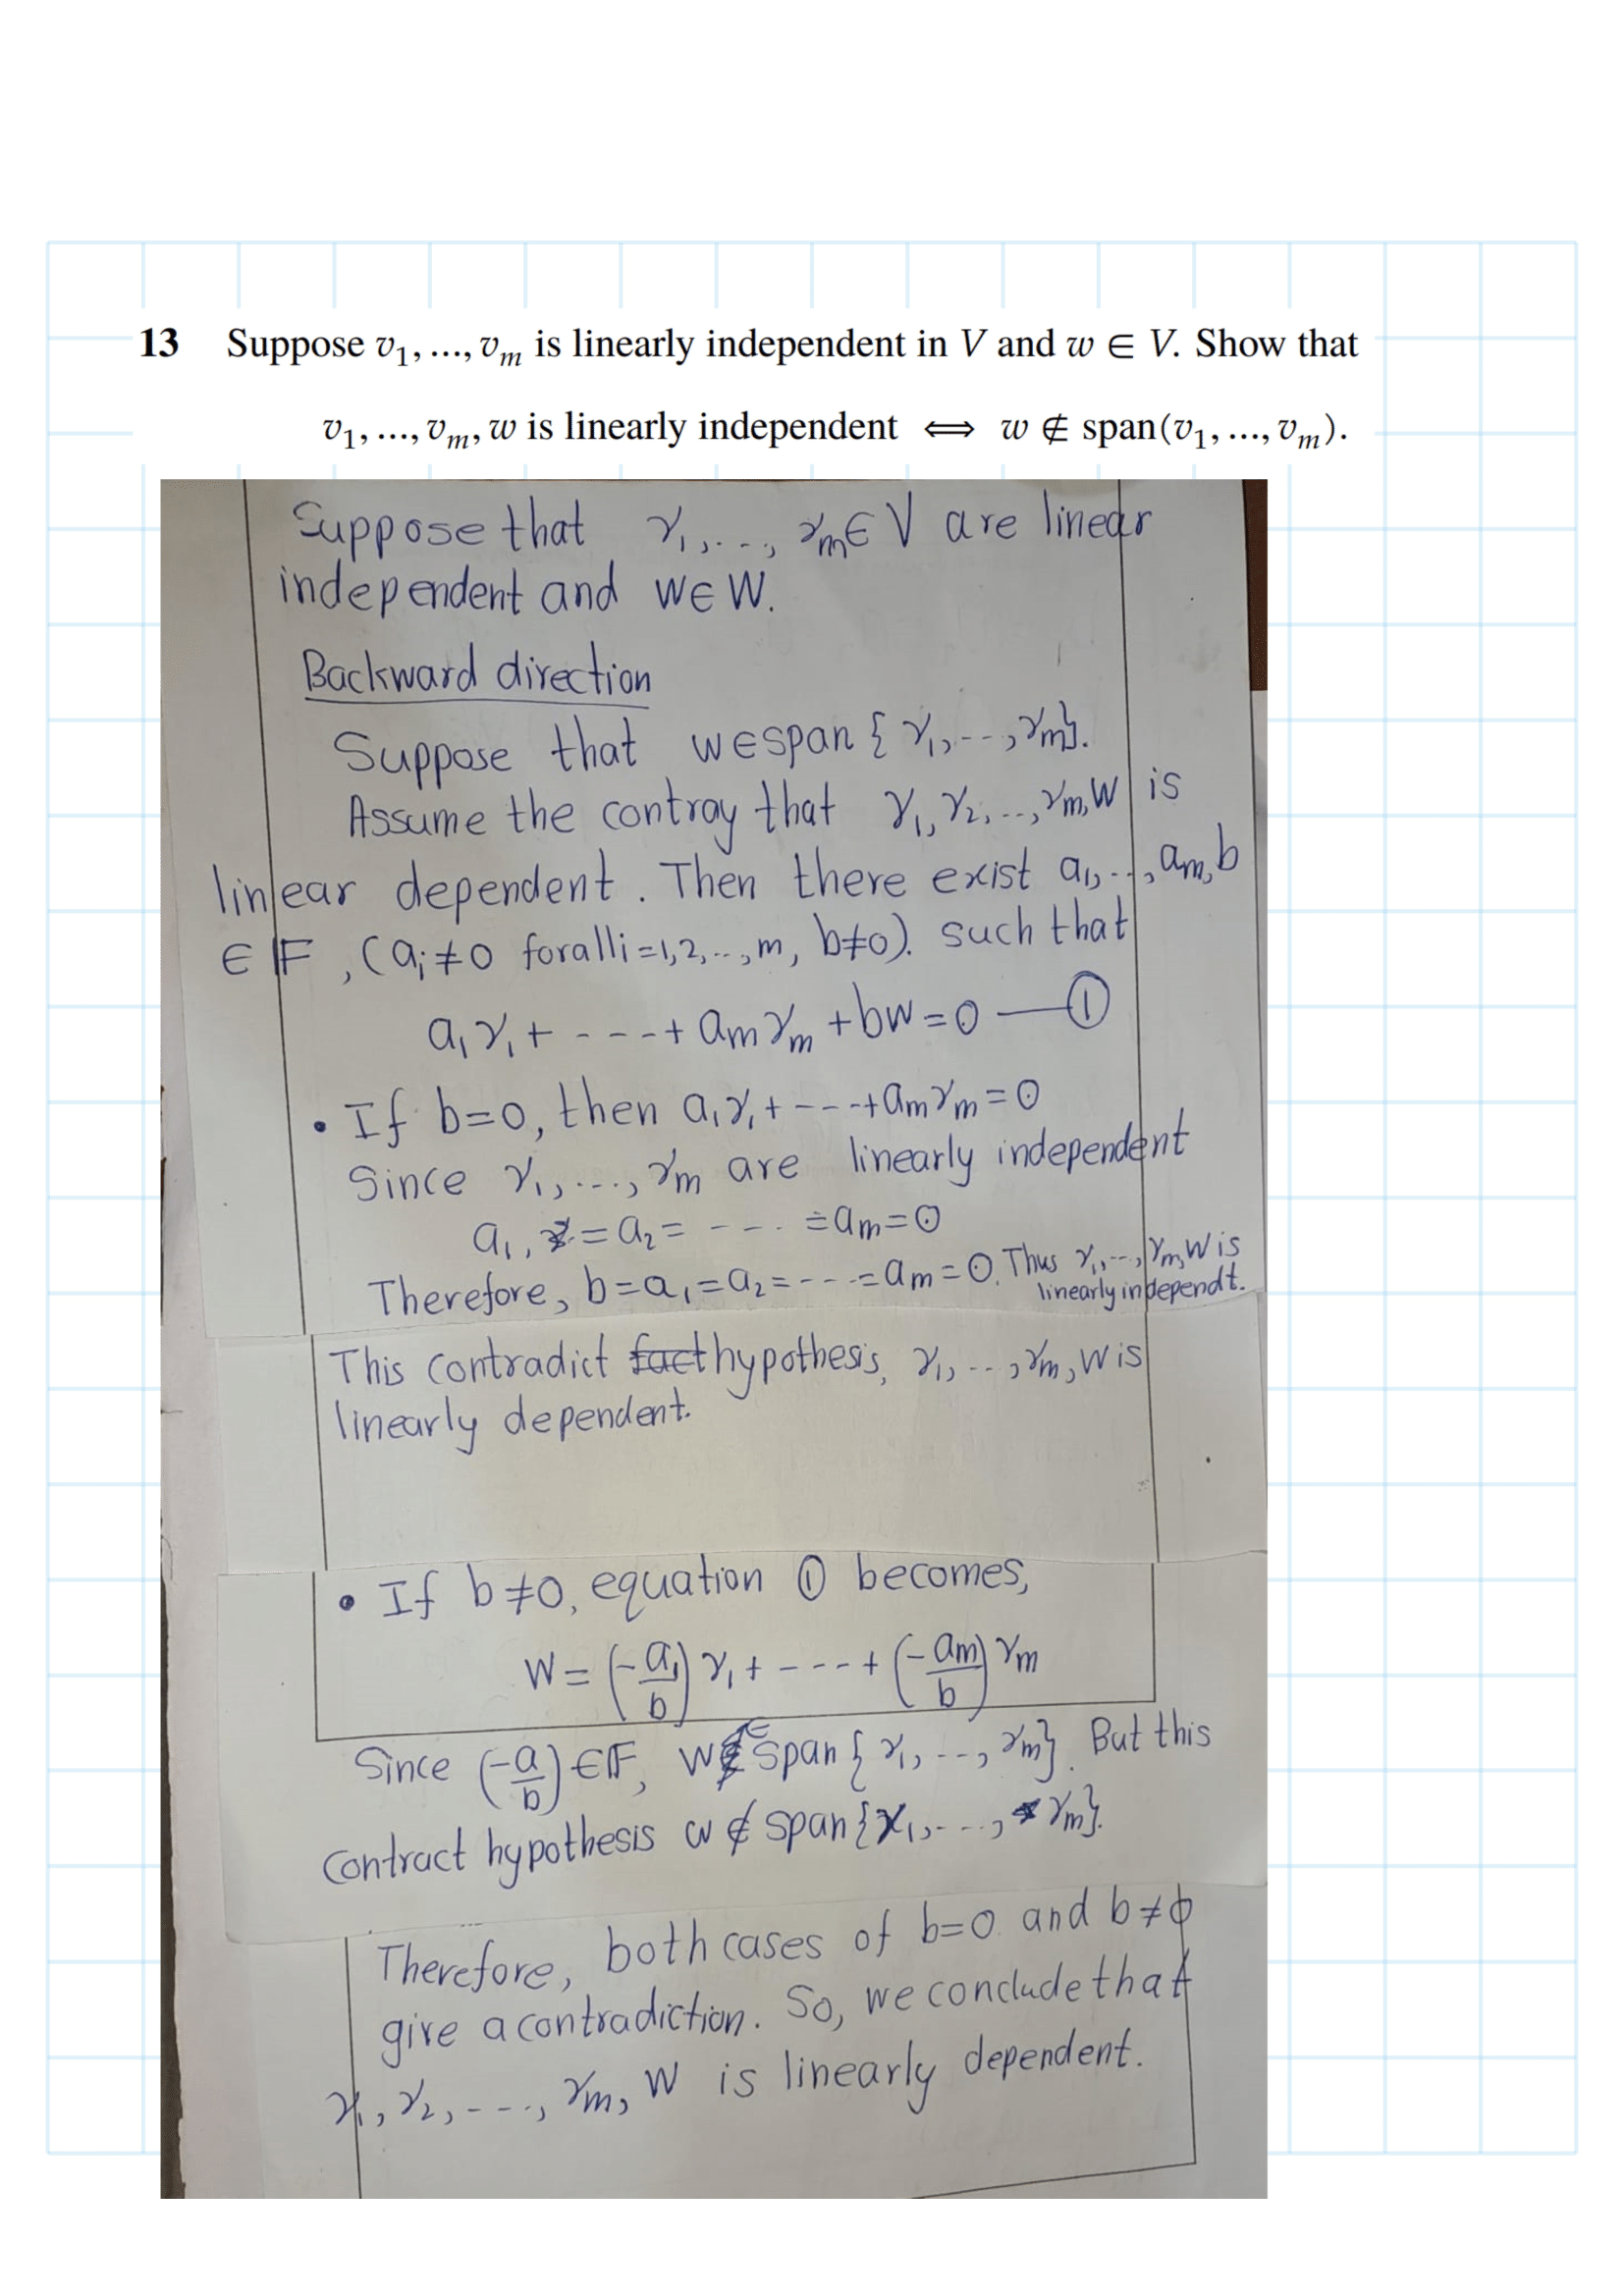 13 Suppose v₁, ..., vₘ is linearly independent in V and w ∈ V. Show that
v₁, ..., vₘ, w is linearly independent ⟺ w ∉ span(v₁, ..., vₘ).
Suppose that v₁, ..., vₘ ∈ V are linear
independent and w ∈ W.
Backward direction
Suppose that w ∈ span { v₁, --, vₘ}.
Assume the contray that v₁, v₂, .., vₘ, w is
linear dependent. Then there exist a₁, .., aₘ, b
∈ F, (aᵢ ≠ 0 for all i = 1, 2, .., m, b ≠ 0). such that
a₁v₁ + ---- + aₘvₘ + bw = 0 — ①
• If b = 0, then a₁v₁ + --- + aₘvₘ = 0
Since v₁, ..., vₘ are linearly independent
a₁, = a₂ = --- . = aₘ = 0
Therefore, b = a₁ = a₂ = --- = aₘ = 0. Thus v₁, --, vₘ, w is
linearly independt.
This contradict fact hypothesis, v₁, --, vₘ, w is
linearly dependent.
• If b ≠ 0, equation ① becomes,
w = (-a₁/b) v₁ + ---- + (-aₘ/b) vₘ
Since (-a/b) ∈ F, w ∈ span { v₁, --, vₘ}. But this
contract hypothesis w ∉ span {v₁, ---, vₘ}.
Therefore, both cases of b = 0 and b ≠ 0
give a contradiction. So, we conclude that
v₁, v₂, ---, vₘ, w is linearly dependent.